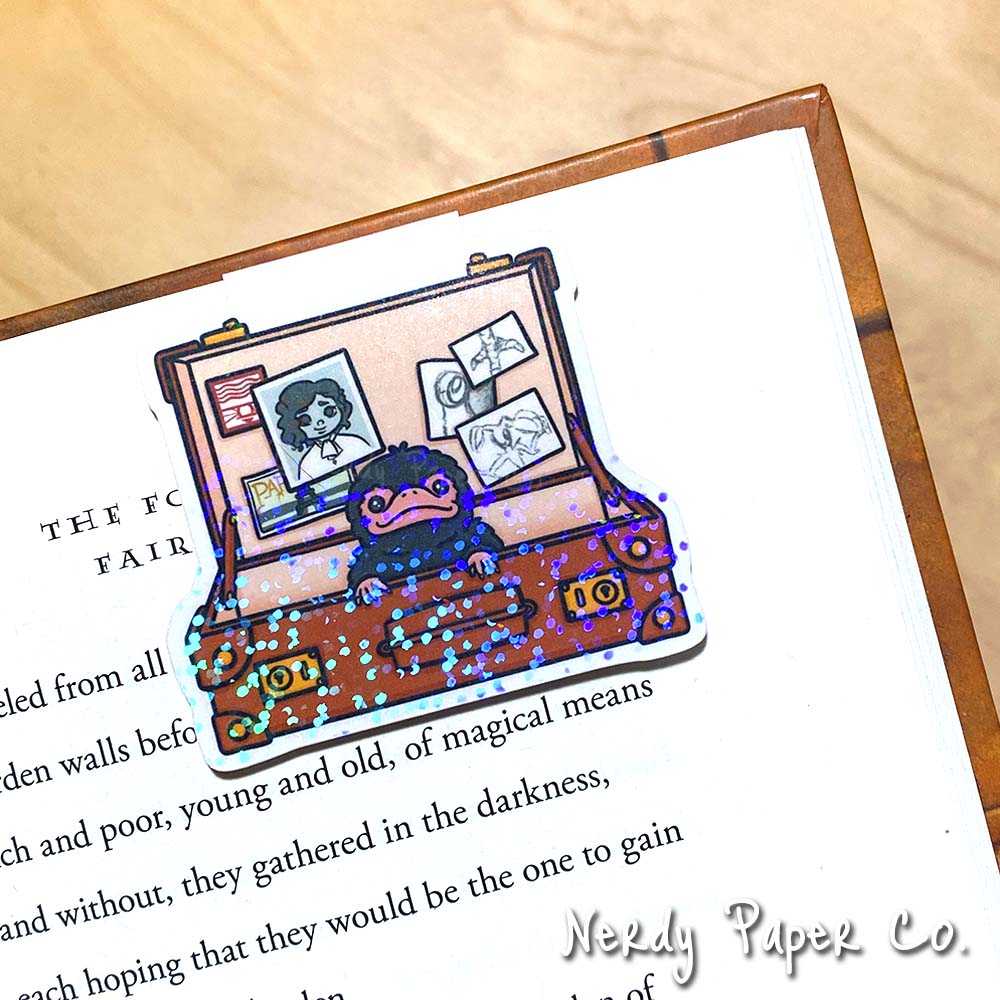 PA
THE FO
FAIR
eled from all
rden walls befo
ch and poor, young and old, of magical means
and without, they gathered in the darkness,
each hoping that they would be the one to gain
of
Nerdy Paper Co.